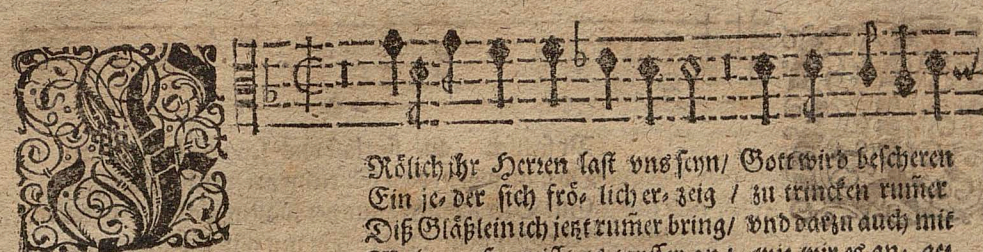 F
Rölich jhr Herren last vns seyn/ Gott wird bescheren
Ein je⸗ der sich frö⸗ lich er⸗ zeig / zu trincken rum̃er
Diß Gläßlein ich jetzt rum̃er bring/ vnd darzu auch mit